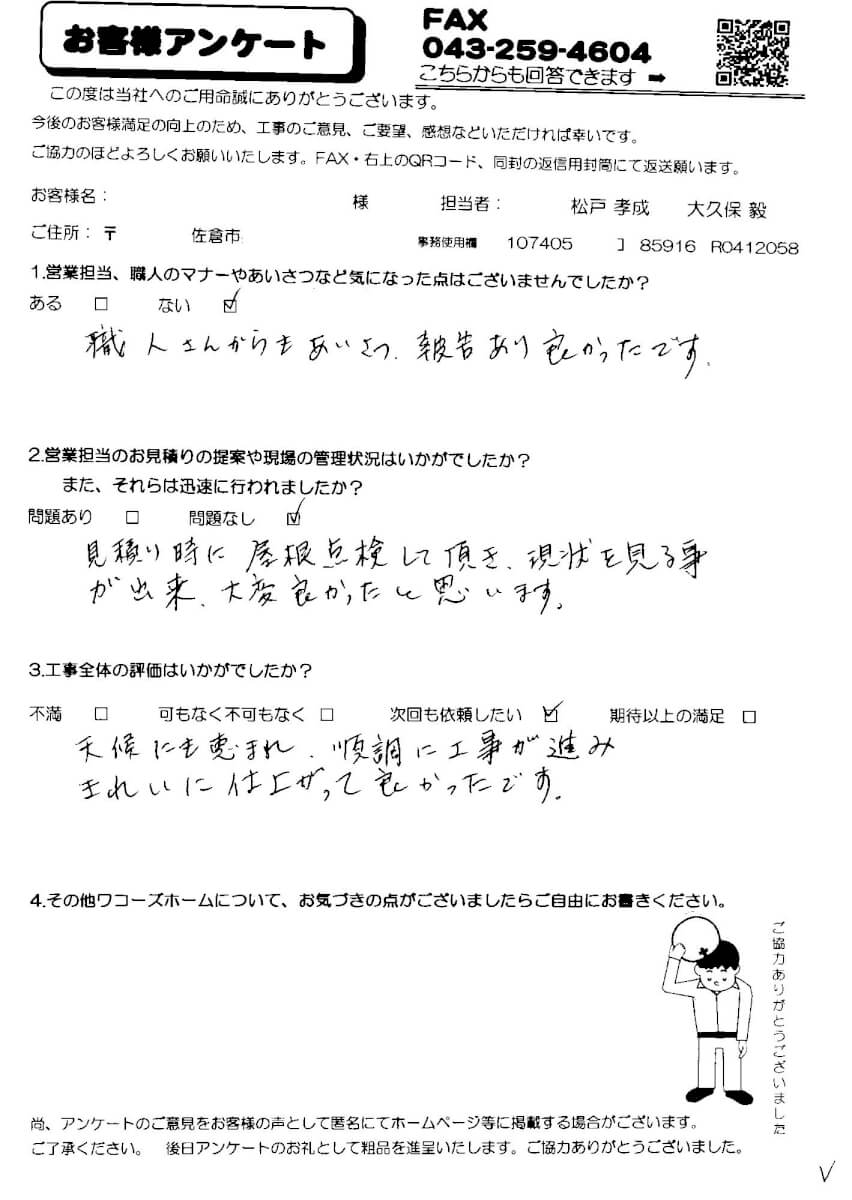 お客様アンケート
FAX
043-259-4604
こちらからも回答できます ➡
この度は当社へのご用命誠にありがとうございます。
今後のお客様満足の向上のため、工事のご意見、ご要望、感想などいただければ幸いです。
ご協力のほどよろしくお願いいたします。FAX・右上のQRコード、同封の返信用封筒にて返送願います。
お客様名： 様 担当者： 松戸 孝成 大久保 毅
ご住所：〒 佐倉市 事務使用欄 107405 コ 85916 R0412058
1.営業担当、職人のマナーやあいさつなど気になった点はございませんでしたか？
ある □ ない ☑
職人さんからもあいさつ、報告あり良かったです。
2.営業担当のお見積りの提案や現場の管理状況はいかがでしたか？
また、それらは迅速に行われましたか？
問題あり □ 問題なし ☑
見積り時に屋根点検して頂き、現状を見る事
が出来、大変良かったと思います。
3.工事全体の評価はいかがでしたか？
不満 □ 可もなく不可もなく □ 次回も依頼したい ☑ 期待以上の満足 □
天候にも恵まれ、順調に工事が進み
きれいに仕上がって良かったです。
4.その他ワコーズホームについて、お気づきの点がございましたらご自由にお書きください。
ご協力ありがとうございました
尚、アンケートのご意見をお客様の声として匿名にてホームページ等に掲載する場合がございます。
ご了承ください。 後日アンケートのお礼として粗品を進呈いたします。ご協力ありがとうございました。